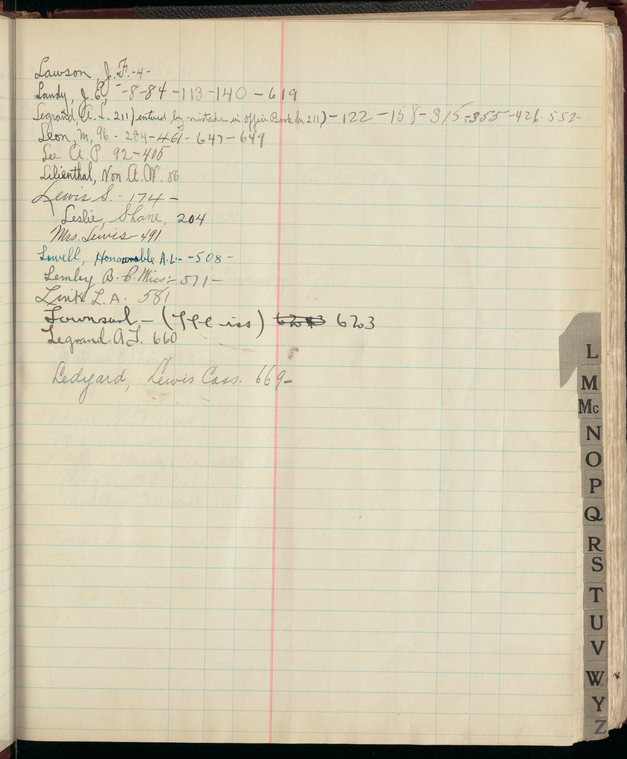 Lawson, J. F. -4-
Landy, J. E. -8-84-113-140-619
Legrand, A. L. 211) entered by mistake in office Book in 211) -122-158-315-355-426-552-
Leon, M. 96-234-461-647-649
Lee A. P. 92-405
Lilienthal, Hon A. W. 86
Lewis S. -174-
Leslie, Shane, 204
Mrs. Lewis-491
Lowell, Honorable A. L. -508-
Lemley B. C. Miss- 571-
Link L. A. 581
Townsend - 6203
Legrand A. L. 660
Ledyard, Lewis Cass. 669-
L
M
Mc
N
O
P
Q
R
S
T
U
V
W
Y
Z